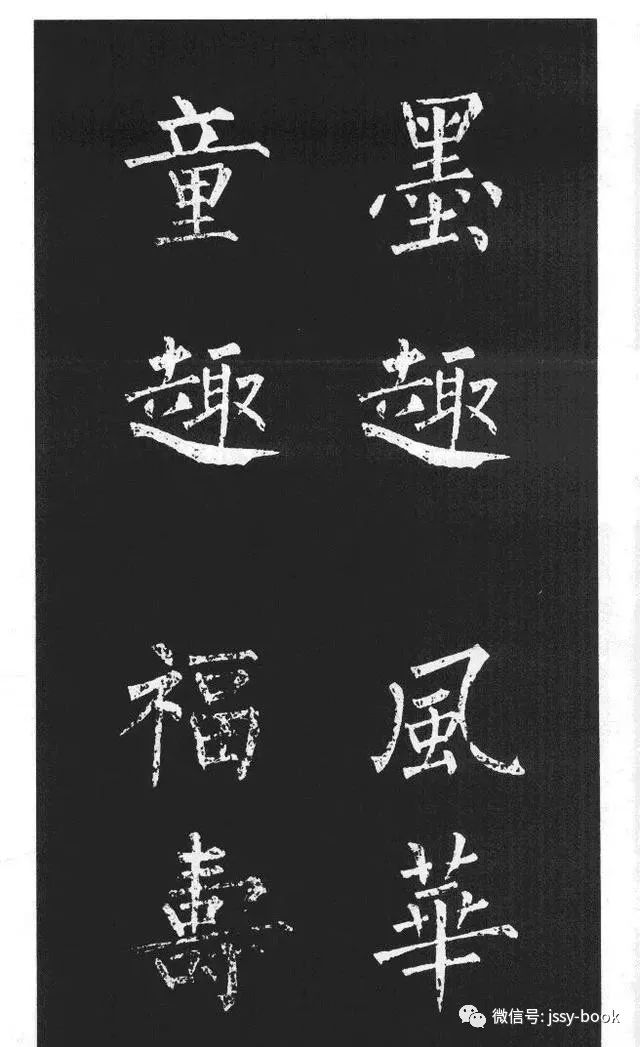 墨趣
風華
童趣
福壽
微信号: jssy-book